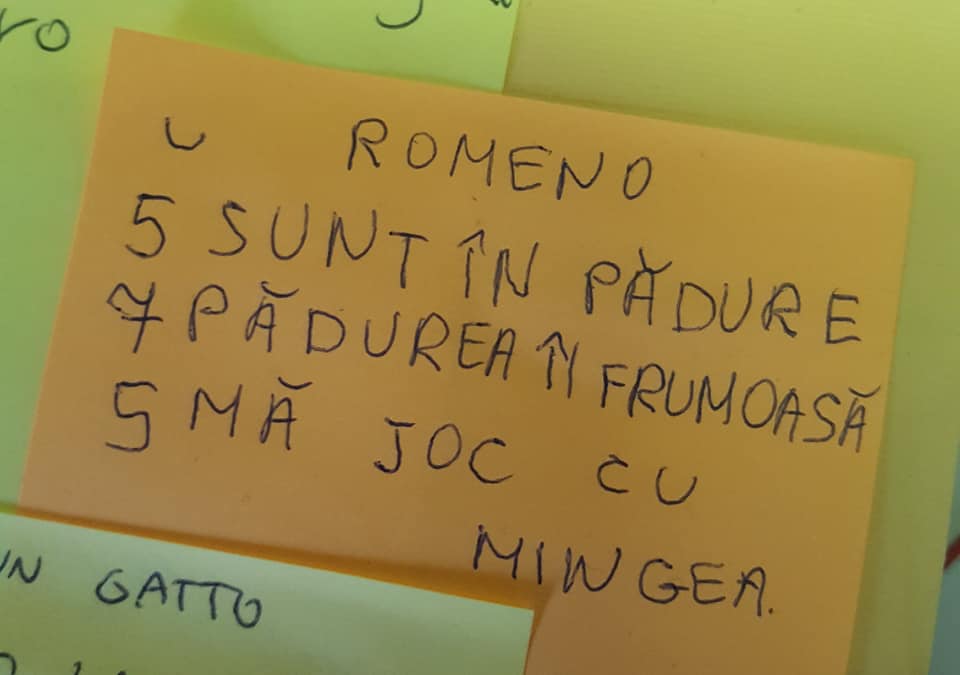 ROMENO
5 SUNT ÎN PĂDURE
7 PĂDUREA ÎI FRUMOASĂ
5 MĂ JOC CU
MINGEA.
UN GATTO